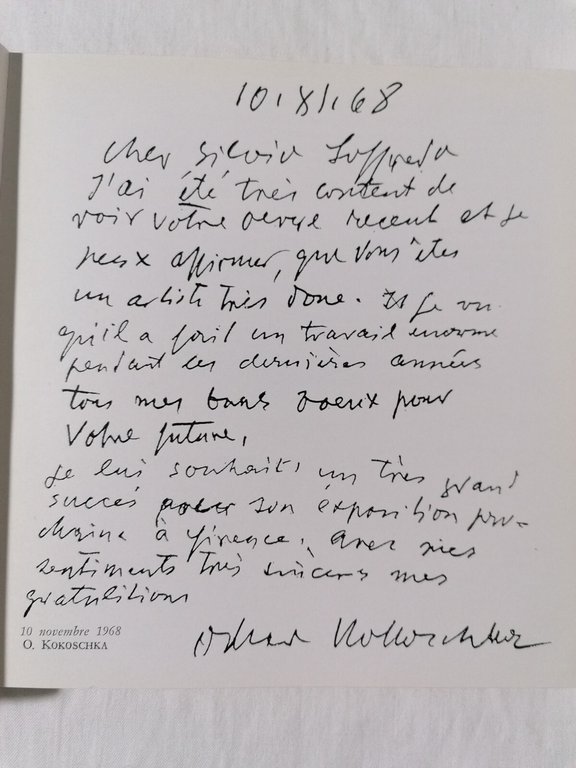 10/XI/68
Cher Silvio Loffredo
J'ai été très content de
voir votre oevre recent et je
peux affirmer, que vous êtes
un artiste très doné. Et je vu
qu'il a fait un travail enorme
pendant les dernières années
tous mes bons voeux pour
Votre future,
je lui souhaite un très grand
succès pour son exposition pro-
chaine à Firence, avec mes
sentiments très sincers mes
gratulitions
10 novembre 1968
O. KOKOSCHKA
Oskar Kokoschka